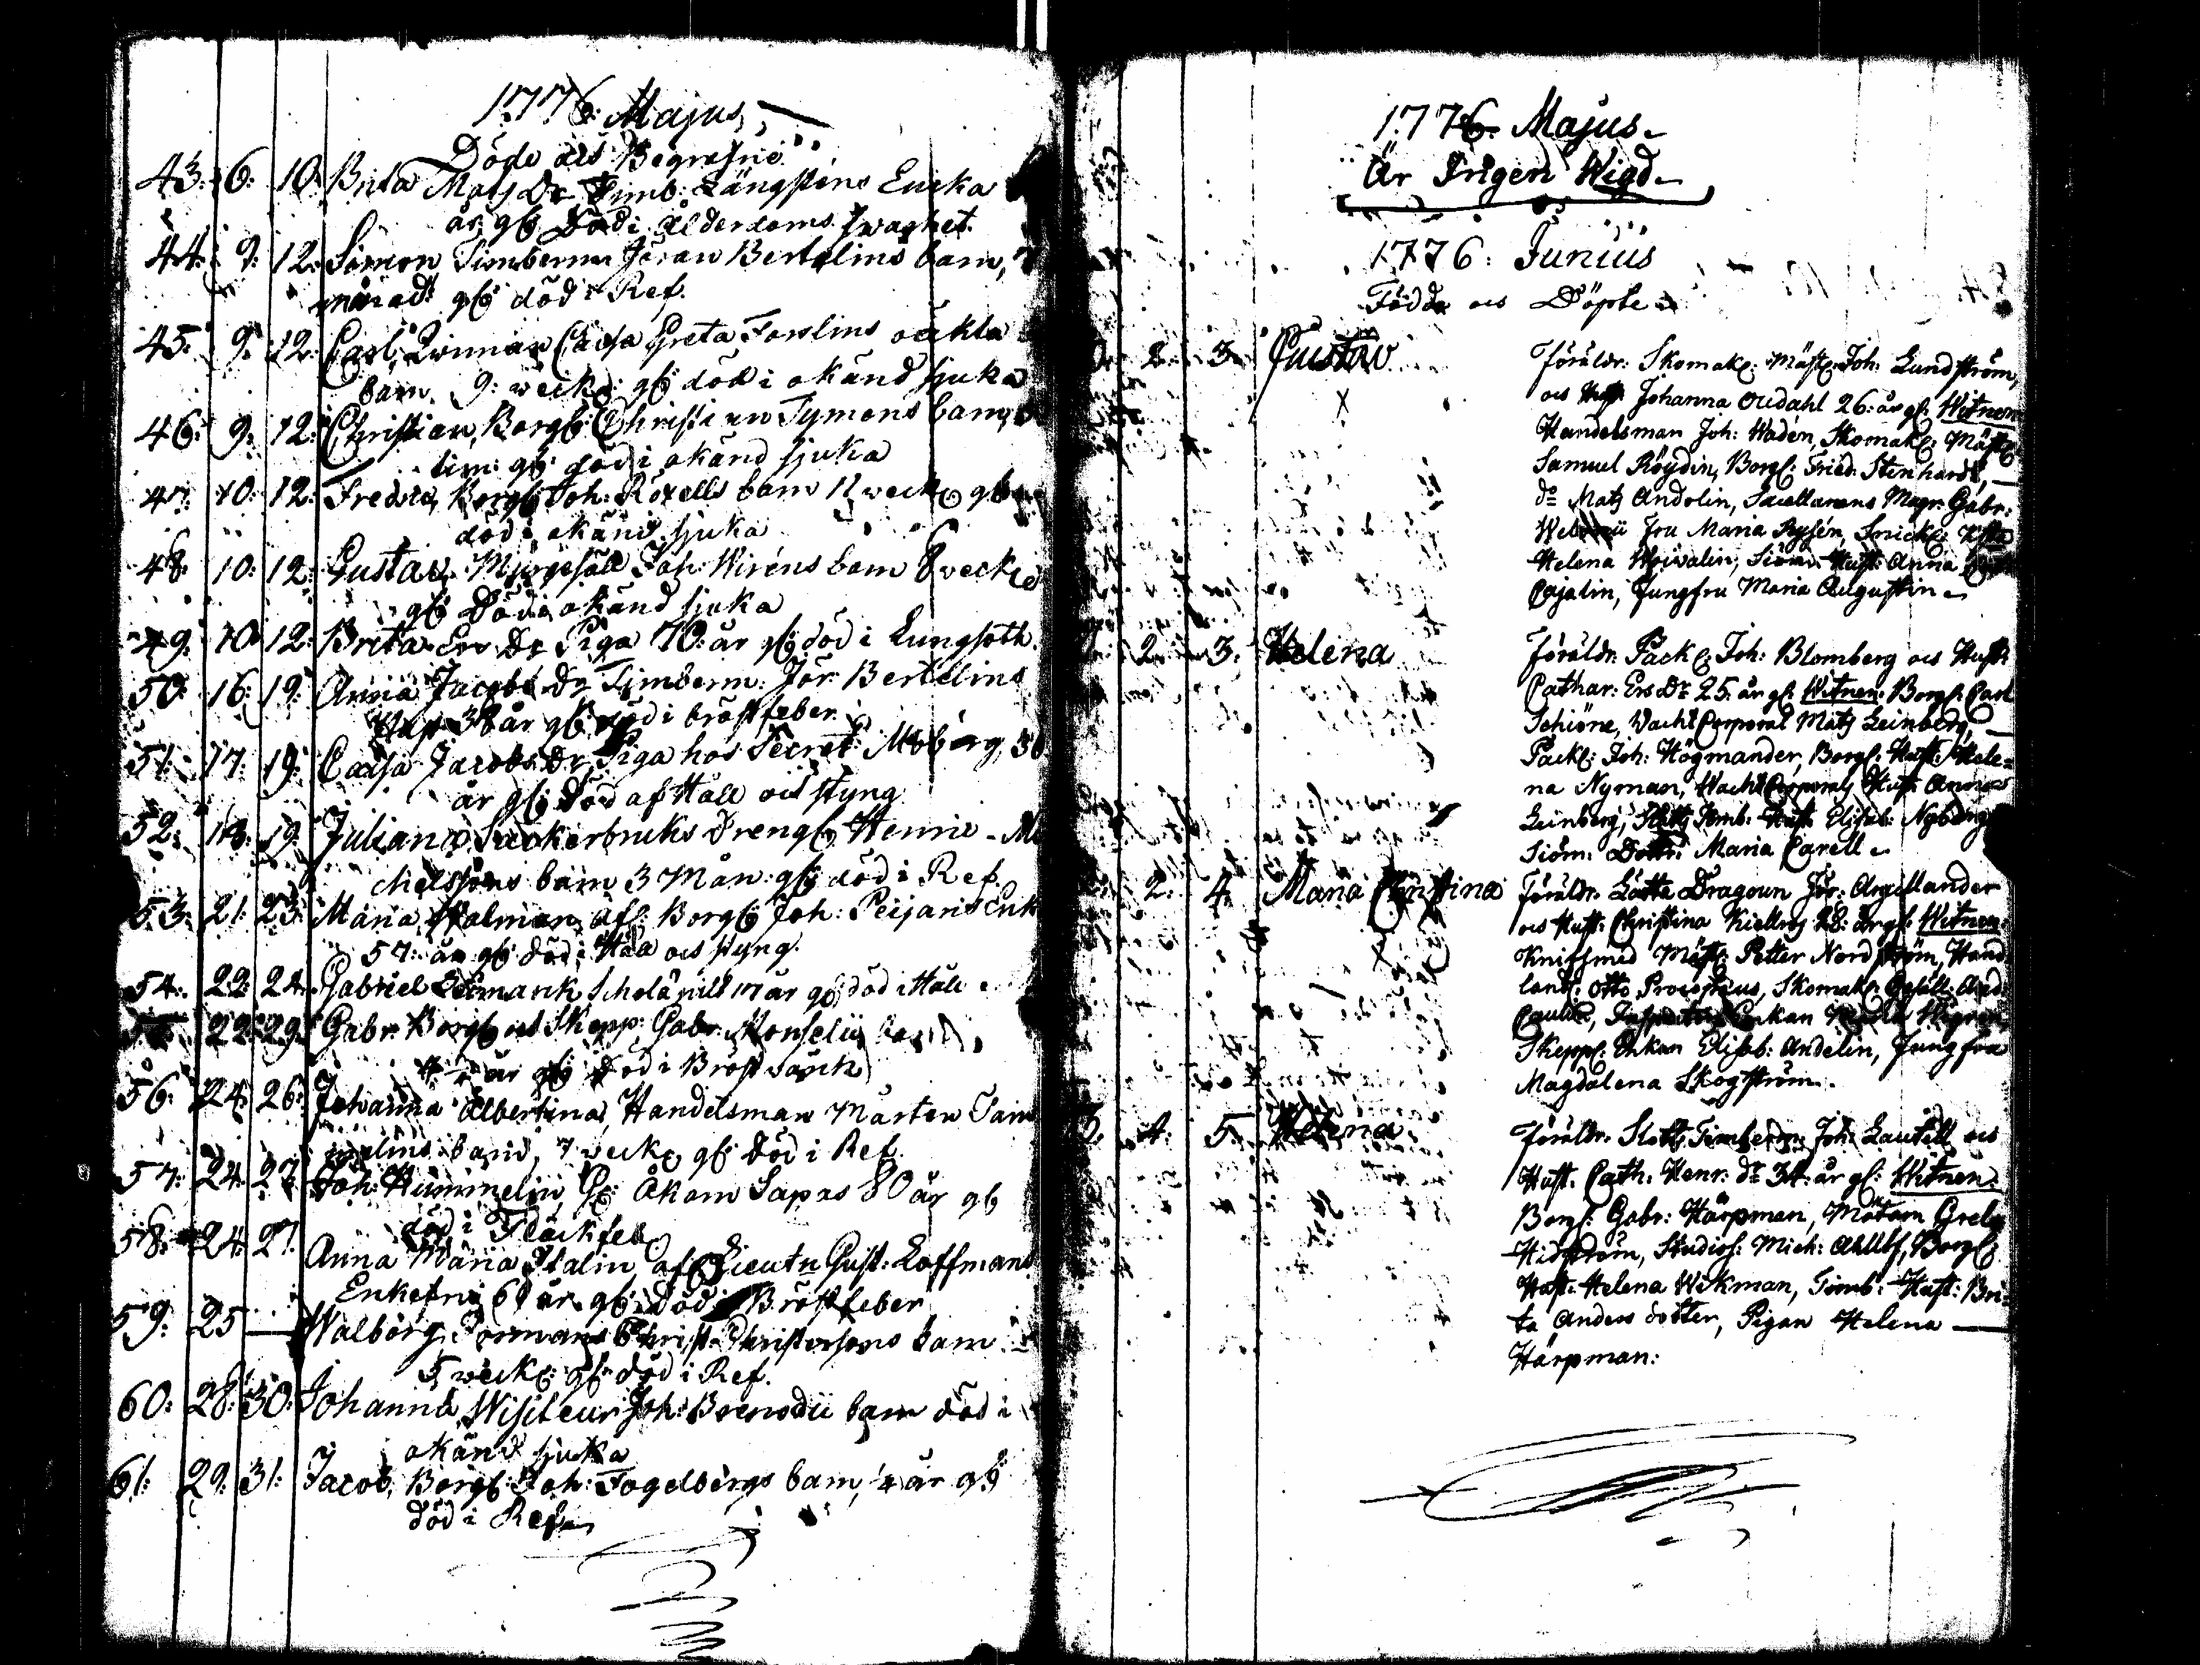 1776. Majus.
Döde och Begrafne
43. 6. 10. Brita Matz Dr Timb: Längstens Encka
år gl: Död i ålderdoms swaghet.
44. 9. 12. Simon Timberm Jöran Bertelins barn, 7
månad: gl: död i Ref.
45. 9. 12. Carl, Qvinnan Caisa Greta Forslins oäkta
barn. 9: weck: gl: död i okänd sjuka
46. 9. 12. Christian, Borg: Christian Tymons barn,
tim: gl: död i okänd sjuka
47. 10. 12. Fredric, Borg: Joh: Roxells barn 12 weck: gl:
död i okänd sjuka
48. 10. 12. Gustav Joh: Wirens barn 8 weck:
gl: Död i okänd sjuka
49. 10. 12. Brita Ers Dr Piga 70: år gl: död i Lungsoth.
50. 16. 19. Anna Jacobs Dr Timberm: Jör Bertelins
Hust 38 år gl: död i bröstfeber.
51. 17. 19. Caisa Jacobs Dr Piga hos Secret: Moberg, 36
år gl: Död af Håll och styng
52. 18. 19. Juliana Sockerbruks Dreng: Henric Mi
chelssons barn 3 Mån: gl: död i Ref
53. 21. 23. Maria Walman afl: Borg: Joh: Peijaris Enk
57: år gl: död i Håll och styng.
54. 22. 24. Gabriel 17 år gl: död i Håll
22. 29. Gabr. Borg: och Skepp: Gabr: barn
år gl: död i Bröstwärck
56. 24. 26. Johanna Albertina, Handelsman Mårten Tam
melins barn, 7 weck: gl: Död i Ref.
57. 24. 27. Joh: Hummelin, Åkom Sapas 80 år gl:
död i Fläckfeb
58. 24. 27. Anna Maria Stalin afl: Lieutn Gust: Loffmans
Enkefru 69 år gl: död i Bröstfeber
59. 25 — Walborg, Formans Christ: Christersons barn
5 weck: gl: död i Ref.
60. 28. 30. Johanna, Wisiteur Joh: barn död i
okänd sjuka
61. 29. 31. Jacob, Borg: Joh: Fogelbergs barn, 4 år gl:
död i Ref.
1776. Majus.
Är Ingen Wigd.
1776. Junius
Födde och Döpte
2. 3. Gustav Föräldr: Skomak: Mäst: Joh: Lundström,
och Hust: Johanna Oudahl 26: år gl: Witnen
Handelsman Joh: Wadén, Skomak: Mäst:
Samuel Röydin, Borg: Fried: Stenhard,
do Matz Andolin, Sacellarens Magr: Gabr:
Fru Maria Rysén, Snick:
Helena Hust: Anna
Cajalin, Jungfru Maria Augustin
2. 3. Helena Föräldr: Pack: Joh: Blomberg och Hust:
Cathar: Ers Dr 25. år gl: Witnen: Borg: Carl
Schiöne, Vacht Corporal Matz Leinberg,
Pack: Joh: Högmander, Borg: Hust: Hele
na Nyman, Wacht Corporals Hust: Anna
Leinberg, Slotts Timb: Hust: Elisab: Nyberg
Siöm: Dottr: Maria Carell
2. 4. Maria Christina Föräldr: Lätta Dragoun Jör: Argellander
och Hust: Christina 28: år gl: Witnen:
Knifsmed Mäst: Petter Nordström, Hand
land: Otto Procopæus, Skomak: Gesäll: And:
Enkan
Skepp: Enkan Elisab: Andelin, Jungfru
Magdalena Skogström.
3. 4. 5. Helena Föräldr: Slotts Timberm: Joh: Lautell och
Hust: Cath: Henr: Dr 34: år gl: Witnen:
Borg: Gabr: Härpman,
Hidström, Studios: Mich: Borg:
Hust: Helena Wikman, Timb: Hust: Bri
ta Anders dotter, Pigan Helena
Härpman: